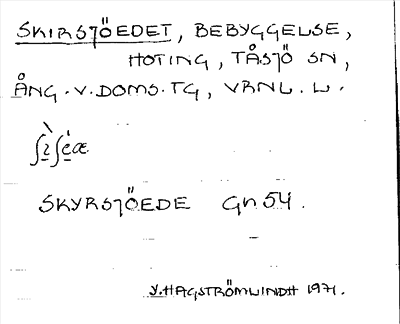 SKIRSJÖEDET, BEBYGGELSE,
HOTING, TÅSJÖ SN,
ÅNG. V. DOMS. TG, VRNL. L.
SKYRSJÖEDE Gn 54.
Y. HAGSTRÖM LINDH 1971.